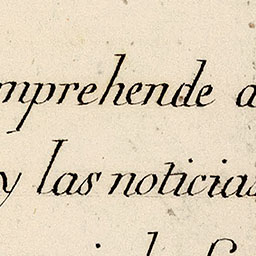 mprehende a
y las noticias